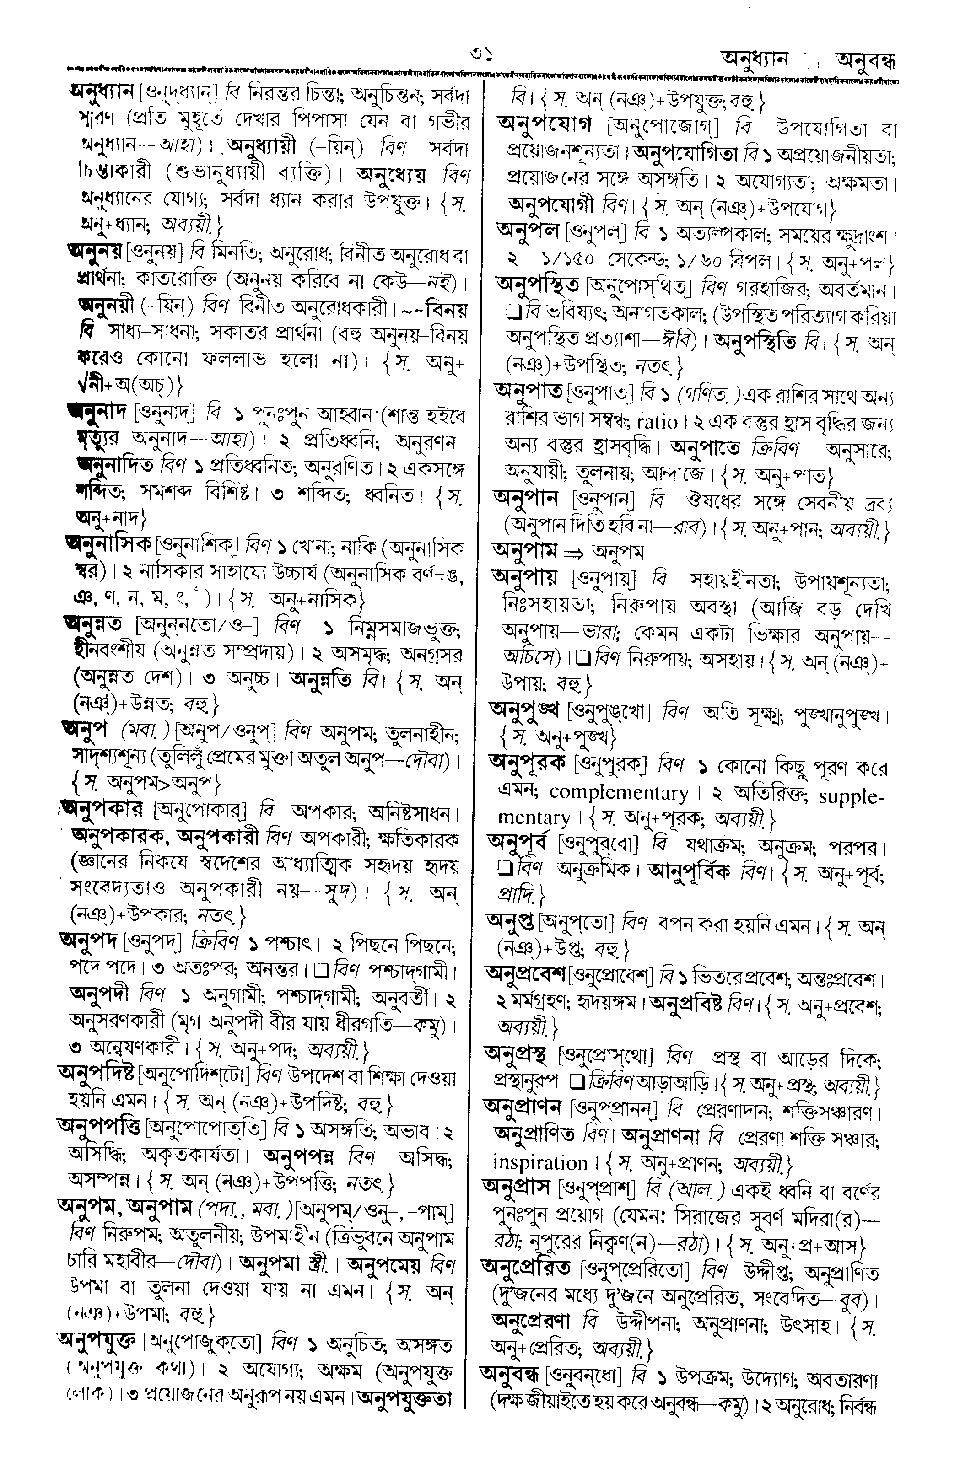 ৩১
অনুধ্যান অনুবন্ধ
অনুধ্যান [ওনুদ্‌ধ্যান্] বি নিরন্তর চিন্তা; অনুচিন্তন; সর্বদা
স্মরণ (প্রতি মুহূর্তে দেখার পিপাসা যেন বা গভীর
অনুধ্যান—আহা)। অনুধ্যায়ী (–য়িন্) বিণ সর্বদা
চিন্তাকারী (শুভানুধ্যায়ী ব্যক্তি)। অনুধ্যেয় বিণ
অনুধ্যানের যোগ্য; সর্বদা ধ্যান করার উপযুক্ত। {স.
অনু+ধ্যান; অব্যয়ী.}
অনুনয় [ওনুনয়্] বি মিনতি; অনুরোধ; বিনীত অনুরোধ বা
প্রার্থনা; কাতরোক্তি (অনুনয় করিবে না কেউ—নই)।
অনুনয়ী (–য়িন্) বিণ বিনীত অনুরোধকারী। ~–বিনয়
বি সাধ্য–সাধনা; সকাতর প্রার্থনা (বহু অনুনয়–বিনয়
করেও কোনো ফললাভ হলো না)। {স. অনু+
√নী+অ(অচ্)}
অনুনাদ [ওনুনাদ্] বি ১ পুনঃপুন আহ্বান (শান্ত হইবে
মৃত্যুর অনুনাদ—আহা)। ২ প্রতিধ্বনি; অনুরণন
অনুনাদিত বিণ ১ প্রতিধ্বনিত; অনুরণিত। ২ একসঙ্গে
শব্দিত; সমশব্দ বিশিষ্ট। ৩ শব্দিত; ধ্বনিত। {স.
অনু+নাদ}
অনুনাসিক [ওনুনাশিক্] বিণ ১ খোনা; নাকি (অনুনাসিক
স্বর)। ২ নাসিকার সাহায্যে উচ্চার্য (অনুনাসিক বর্ণ–ঙ,
ঞ, ণ, ন, ম, ং, ঁ)। {স. অনু+নাসিক}
অনুন্নত [অনুন্‌নতো/ও–] বিণ ১ নিম্নসমাজভুক্ত;
হীনবংশীয় (অনুন্নত সম্প্রদায়)। ২ অসমৃদ্ধ; অনগ্রসর
(অনুন্নত দেশ)। ৩ অনুচ্চ। অনুন্নতি বি। {স. অন্
(নঞ্)+উন্নত; বহু.}
অনুপ (মবা.) [অনুপ্/ওনুপ্] বিণ অনুপম; তুলনাহীন;
সাদৃশ্যশূন্য (তুলিলুঁ প্রেমের মুক্তা অতুল অনুপ—দৌবা)।
{স. অনুপম>অনুপ}
অনুপকার [অনুপোকার্] বি অপকার; অনিষ্টসাধন।
অনুপকারক, অনুপকারী বিণ অপকারী; ক্ষতিকারক
(জ্ঞানের নিকষে স্বদেশের আধ্যাত্মিক সহৃদয় হৃদয়
সংবেদ্যতাও অনুপকারী নয়—সুদ)। {স. অন্
(নঞ্)+উপকার; নতৎ.}
অনুপদ [ওনুপদ্] ক্রিবিণ ১ পশ্চাৎ। ২ পিছনে পিছনে;
পদে পদে। ৩ অতঃপর; অনন্তর। ❑ বিণ পশ্চাদ্‌গামী।
অনুপদী বিণ ১ অনুগামী; পশ্চাদ্‌গামী; অনুবর্তী। ২
অনুসরণকারী (মৃগ অনুপদী বীর যায় ধীরগতি—কমু)।
৩ অন্বেষণকারী। {স. অনু+পদ; অব্যয়ী.}
অনুপদিষ্ট [অনুপোদিশ্‌টো] বিণ উপদেশ বা শিক্ষা দেওয়া
হয়নি এমন। {স. অন্ (নঞ্)+উপদিষ্ট; বহু.}
অনুপপত্তি [অনুপোপোত্‌তি] বি ১ অসঙ্গতি; অভাব। ২
অসিদ্ধি; অকৃতকার্যতা। অনুপপন্ন বিণ অসিদ্ধ;
অসম্পন্ন। {স. অন্ (নঞ্)+উপপত্তি; নতৎ.}
অনুপম, অনুপাম (পদা., মবা.) [অনুপম্/ওনু–,–পাম্]
বিণ নিরুপম; অতুলনীয়; উপমাহীন (ত্রিভুবনে অনুপাম
চারি মহাবীর—দৌবা)। অনুপমা স্ত্রী.। অনুপমেয় বিণ
উপমা বা তুলনা দেওয়া যায় না এমন। {স. অন্
(নঞ্)+উপমা; বহু.}
অনুপযুক্ত [অনুপোজুক্‌তো] বিণ ১ অনুচিত; অসঙ্গত
(অনুপযুক্ত কথা)। ২ অযোগ্য; অক্ষম (অনুপযুক্ত
লোক)। ৩ প্রয়োজনের অনুরূপ নয় এমন। অনুপযুক্ততা
বি। {স. অন্ (নঞ্)+উপযুক্ত; বহু.}
অনুপযোগ [অনুপোজোগ্] বি উপযোগিতা বা
প্রয়োজনশূন্যতা। অনুপযোগিতা বি ১ অপ্রয়োজনীয়তা;
প্রয়োজনের সঙ্গে অসঙ্গতি। ২ অযোগ্যতা; অক্ষমতা।
অনুপযোগী বিণ। {স. অন্ (নঞ্)+উপযোগ}
অনুপল [ওনুপল্] বি ১ অত্যল্পকাল; সময়ের ক্ষুদ্রাংশ।
২ ১/১৫০ সেকেন্ড; ১/৬০ বিপল। {স. অনু+পল}
অনুপস্থিত [অনুপোস্‌থিত্] বিণ গরহাজির; অবর্তমান।
❑ বি ভবিষ্যৎ; অনাগতকাল; (উপস্থিত পরিত্যাগ করিয়া
অনুপস্থিত প্রত্যাশা—ঈবি)। অনুপস্থিতি বি। {স. অন্
(নঞ্)+উপস্থিত; নতৎ.}
অনুপাত [ওনুপাত্] বি ১ (গণিত.) এক রাশির সাথে অন্য
রাশির ভাগ সম্বন্ধ; ratio। ২ এক বস্তুর হ্রাস বৃদ্ধির জন্য
অন্য বস্তুর হ্রাসবৃদ্ধি। অনুপাতে ক্রিবিণ অনুসারে;
অনুযায়ী; তুলনায়; আন্দাজে। {স. অনু+পাত}
অনুপান [ওনুপান্] বি ঔষধের সঙ্গে সেবনীয় দ্রব্য
(অনুপান দিতি হবি না—রাব)। {স. অনু+পান; অব্যয়ী.}
অনুপাম ⇒ অনুপম
অনুপায় [ওনুপায়্] বি সহায়হীনতা; উপায়শূন্যতা;
নিঃসহায়তা; নিরুপায় অবস্থা (আজি বড় দেখি
অনুপায়—ভারা; কেমন একটা ভিক্ষার অনুপায়—
অচিসে)। ❑ বিণ নিরুপায়; অসহায়। {স. অন্ (নঞ্)+
উপায়; বহু.}
অনুপুঙ্খ [ওনুপুঙ্‌খো] বিণ অতি সূক্ষ্ম; পুঙ্খানুপুঙ্খ।
{স. অনু+পুঙ্খ}
অনুপূরক [ওনুপুরক্] বিণ ১ কোনো কিছু পূরণ করে
এমন; complementary। ২ অতিরিক্ত; supple-
mentary। {স. অনু+পূরক; অব্যয়ী.}
অনুপূর্ব [ওনুপুর্‌বো] বি যথাক্রম; অনুক্রম; পরপর।
❑ বিণ অনুক্রমিক। আনুপূর্বিক বিণ। {স. অনু+পূর্ব;
প্রাদি.}
অনুপ্ত [অনুপ্‌তো] বিণ বপন করা হয়নি এমন। {স. অন্
(নঞ্)+উপ্ত; বহু.}
অনুপ্রবেশ [ওনুপ্রোবেশ্] বি ১ ভিতরে প্রবেশ; অন্তঃপ্রবেশ।
২ মর্মগ্রহণ; হৃদয়ঙ্গম। অনুপ্রবিষ্ট বিণ। {স. অনু+প্রবেশ;
অব্যয়ী.}
অনুপ্রস্থ [ওনুপ্রোস্‌থো] বিণ প্রস্থ বা আড়ের দিকে;
প্রস্থানুরূপ ❑ ক্রিবিণ আড়াআড়ি। {স. অনু+প্রস্থ; অব্যয়ী.}
অনুপ্রাণন [ওনুপ্‌প্রানন্] বি প্রেরণাদান; শক্তিসঞ্চারণ।
অনুপ্রাণিত বিণ। অনুপ্রাণনা বি প্রেরণা শক্তি সঞ্চার;
inspiration। {স. অনু+প্রাণন; অব্যয়ী.}
অনুপ্রাস [ওনুপ্‌প্রাশ্] বি (আল.) একই ধ্বনি বা বর্ণের
পুনঃপুন প্রয়োগ (যেমন: সিরাজের সুবর্ণ মদিরা(র)—
রঠা; নূপুরের নিক্বণ(ন)—রঠা)। {স. অনু+প্র+আস}
অনুপ্রেরিত [ওনুপ্‌প্রেরিতো] বিণ উদ্দীপ্ত; অনুপ্রাণিত
(দু’জনের মধ্যে দু’জনে অনুপ্রেরিত, সংবেদিত—বুব)।
অনুপ্রেরণা বি উদ্দীপনা; অনুপ্রাণনা; উৎসাহ। {স.
অনু+প্রেরিত; অব্যয়ী.}
অনুবন্ধ [ওনুবন্‌ধো] বি ১ উপক্রম; উদ্যোগ; অবতারণা
(দক্ষ জীয়াইতে হয় করে অনুবন্ধ—কমু)। ২ অনুরোধ; নির্বন্ধ